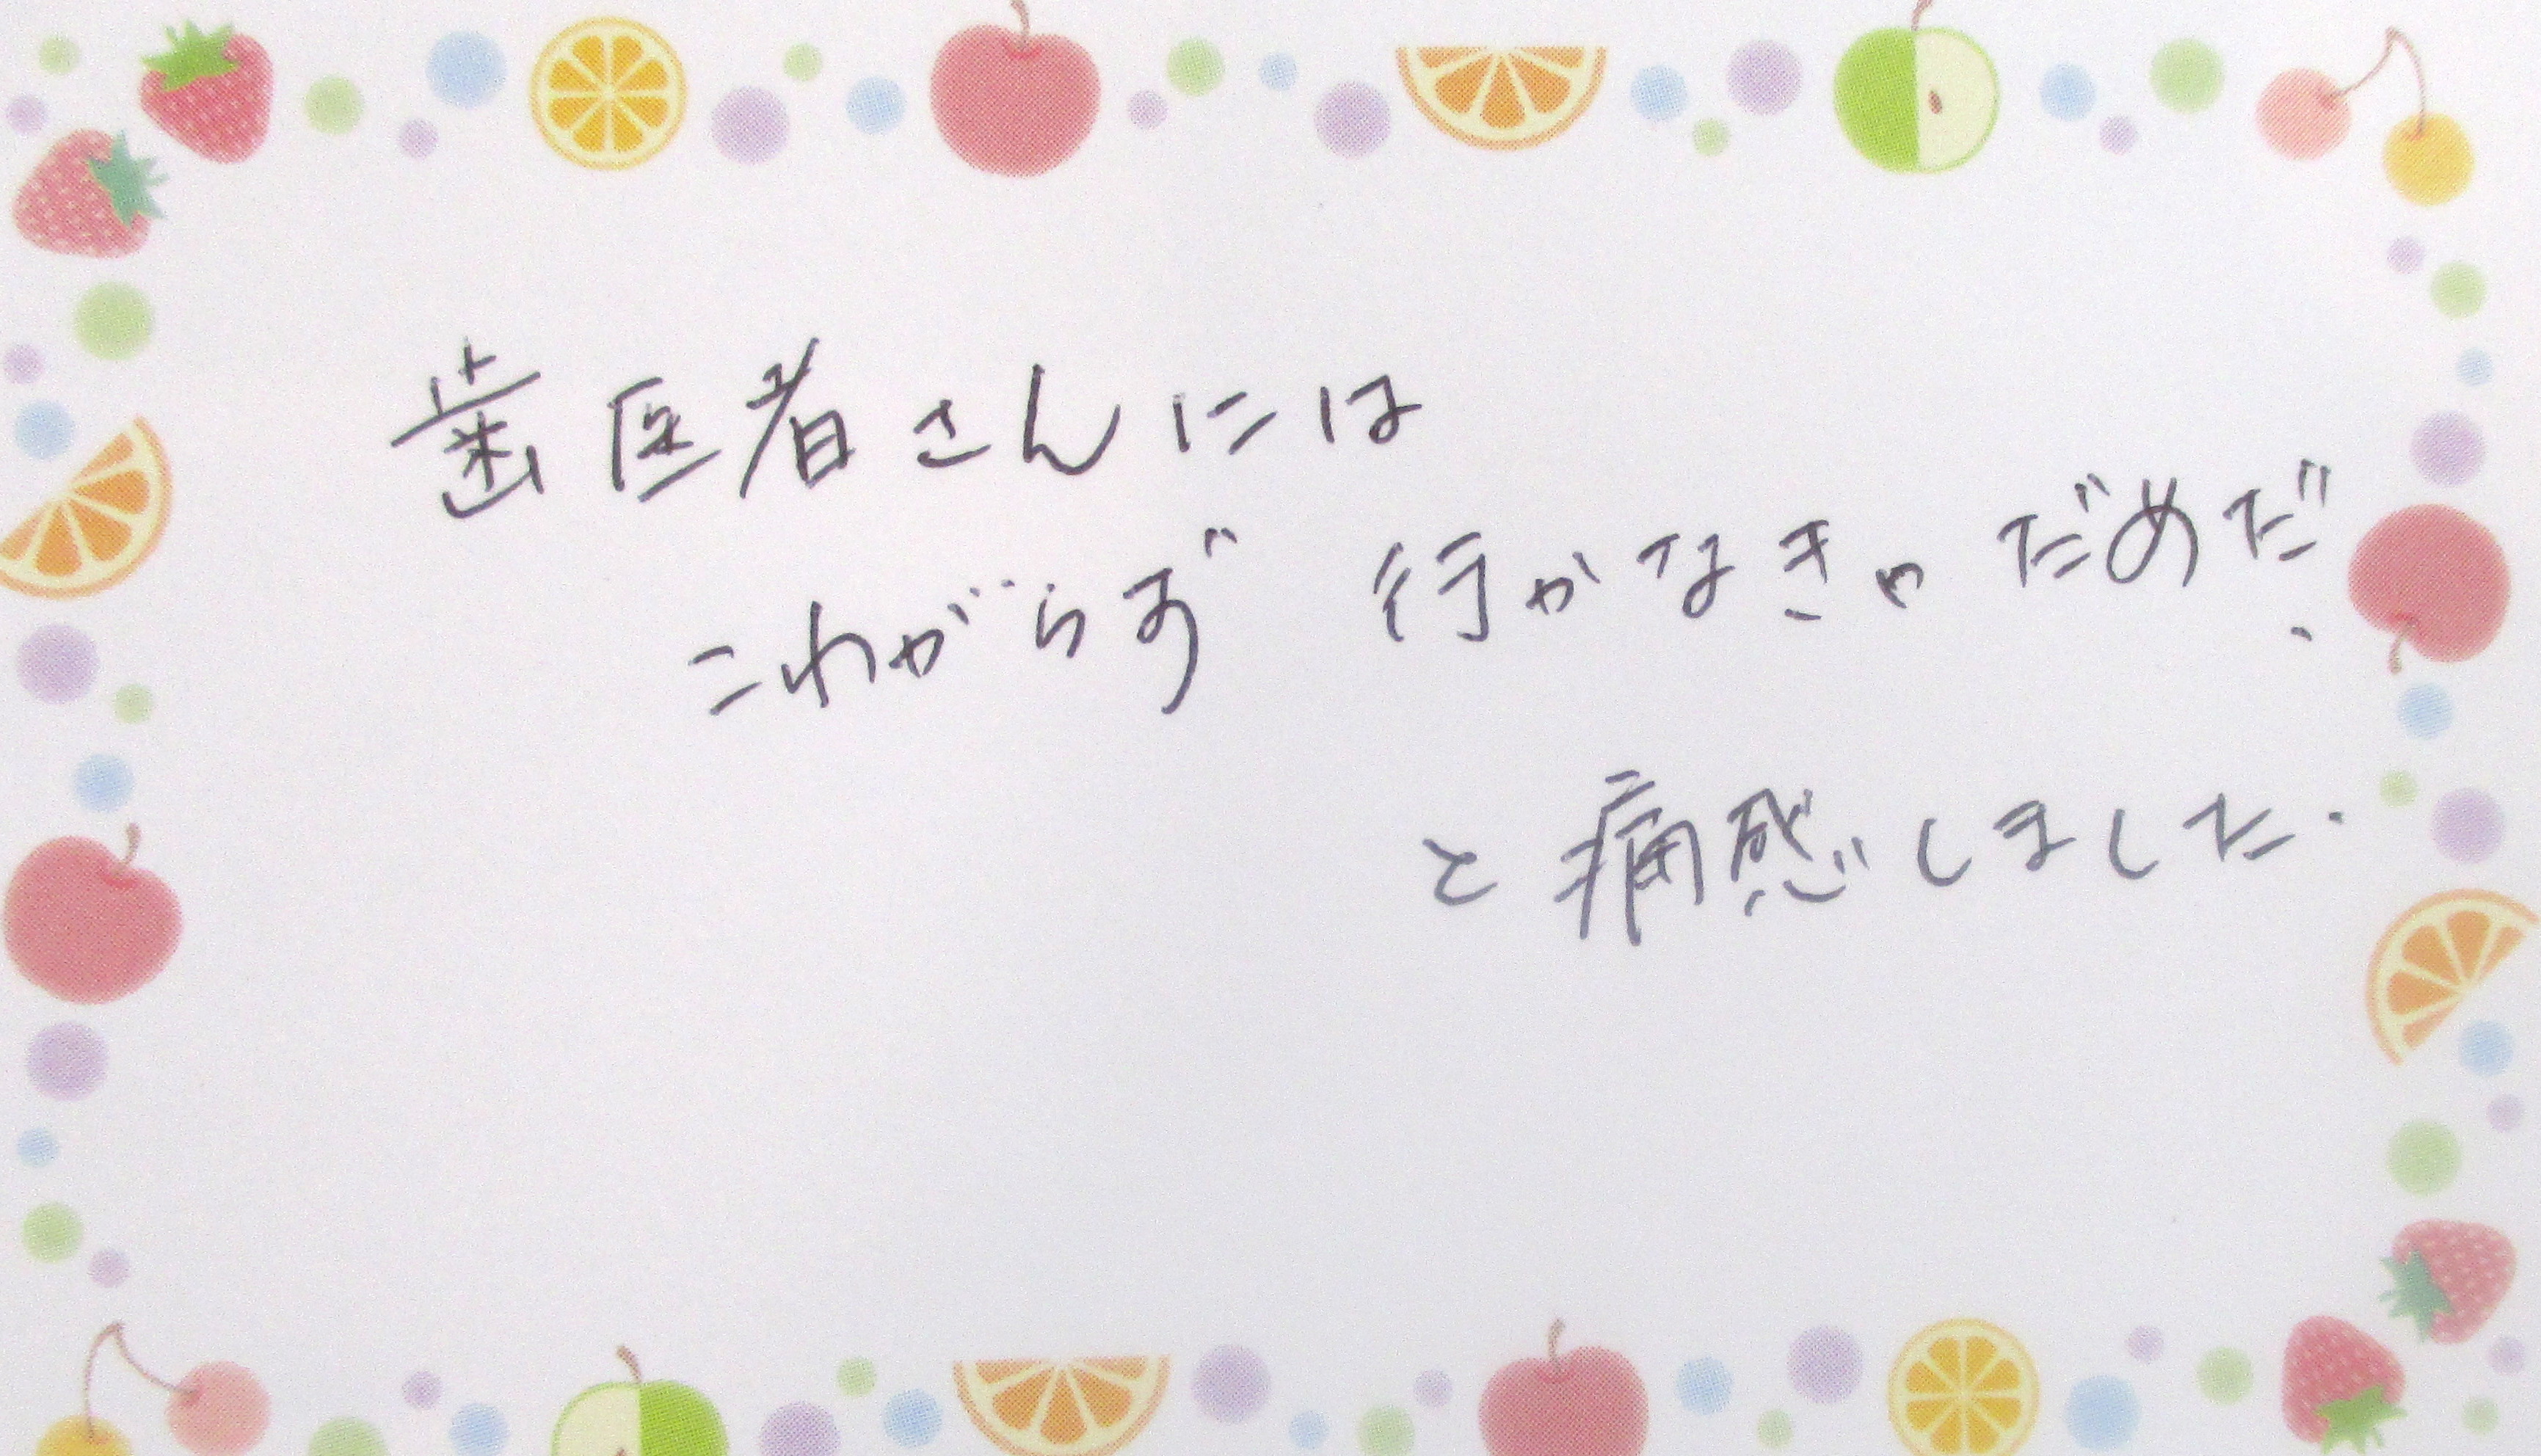 歯医者さんには
こわがらず 行かなきゃだめだ、
と痛感しました.